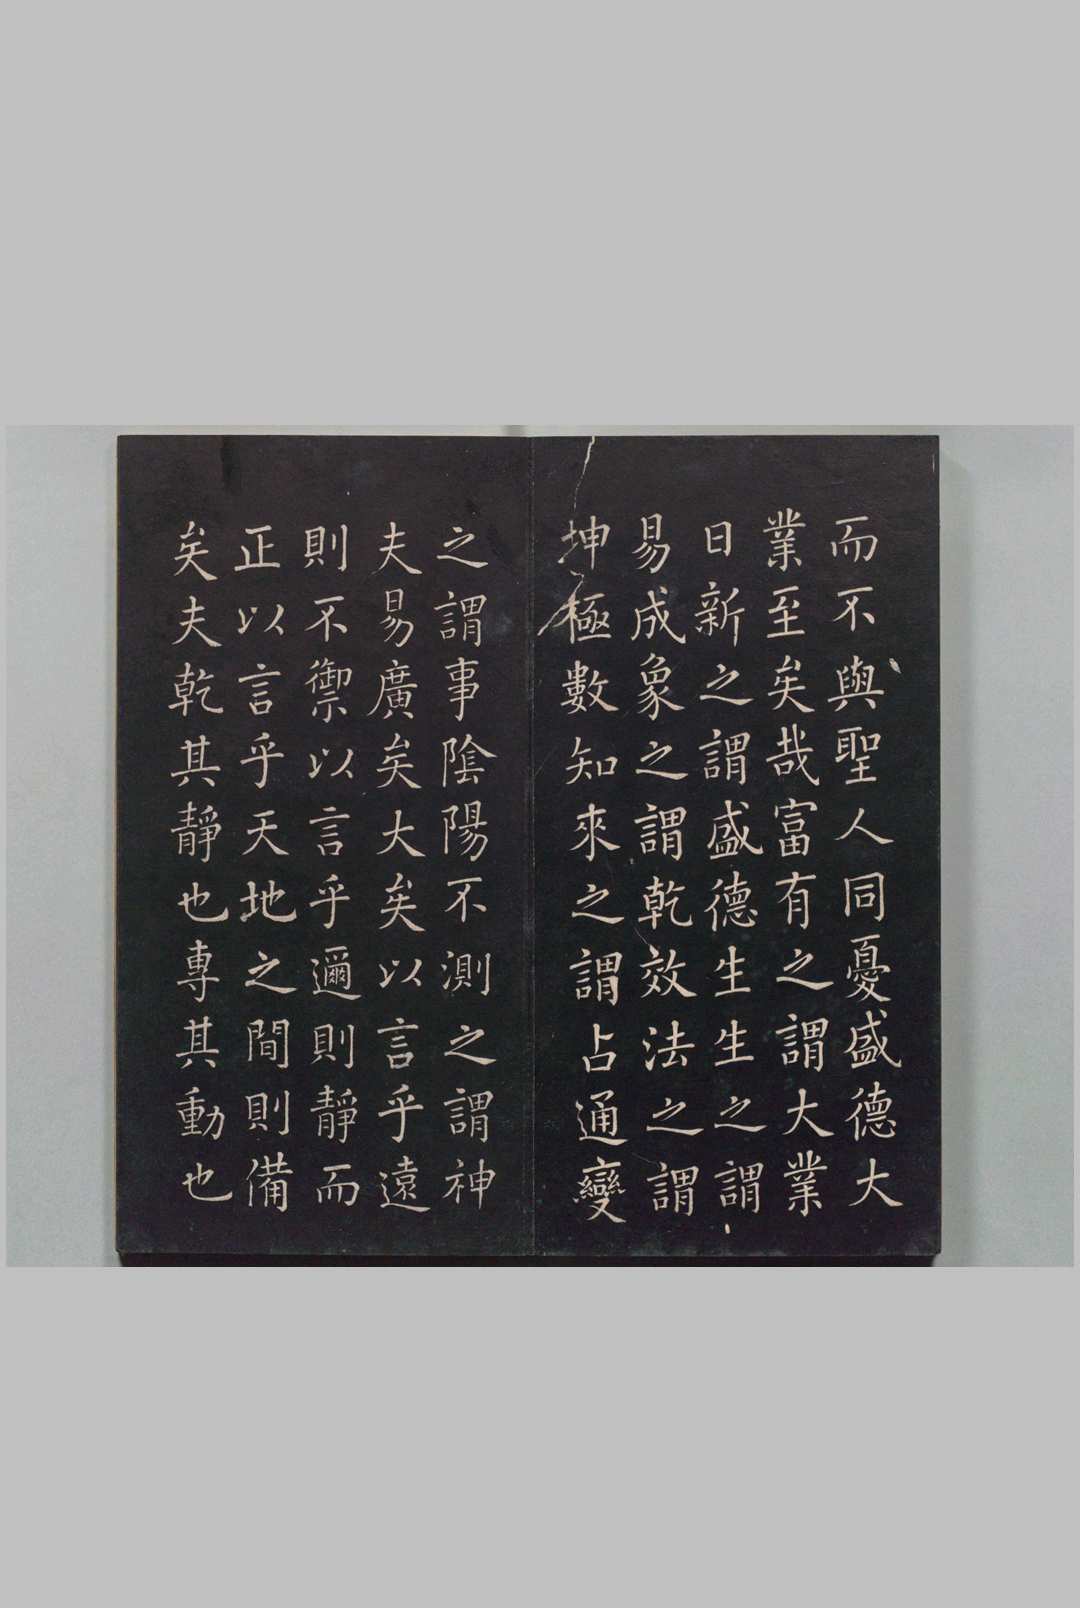 而不與聖人同憂盛德大
業至矣哉富有之謂大業
日新之謂盛德生生之謂
易成象之謂乾效法之謂
坤極數知來之謂占通變
之謂事陰陽不測之謂神
夫易廣矣大矣以言乎遠
則不禦以言乎邇則靜而
正以言乎天地之間則備
矣夫乾其靜也專其動也